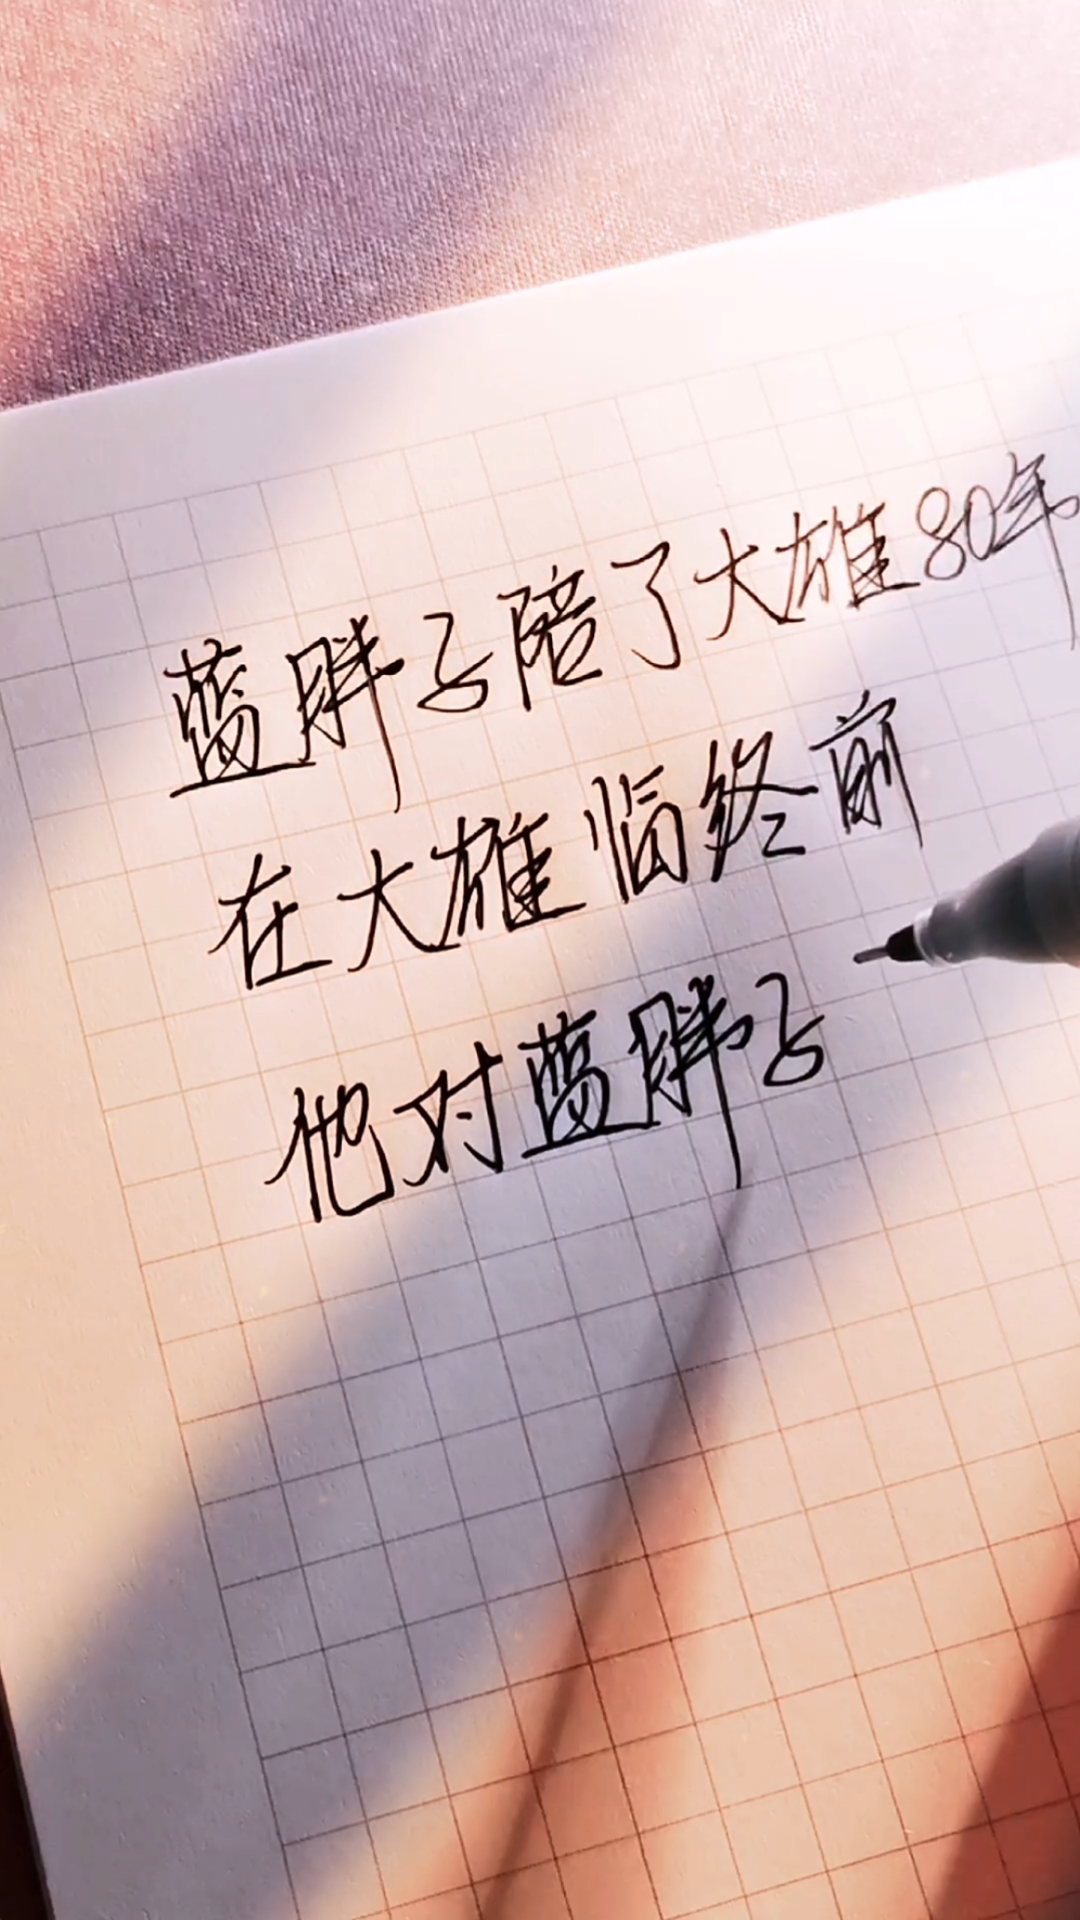 蓝胖子陪了大雄80年
在大雄临终前
他对蓝胖子